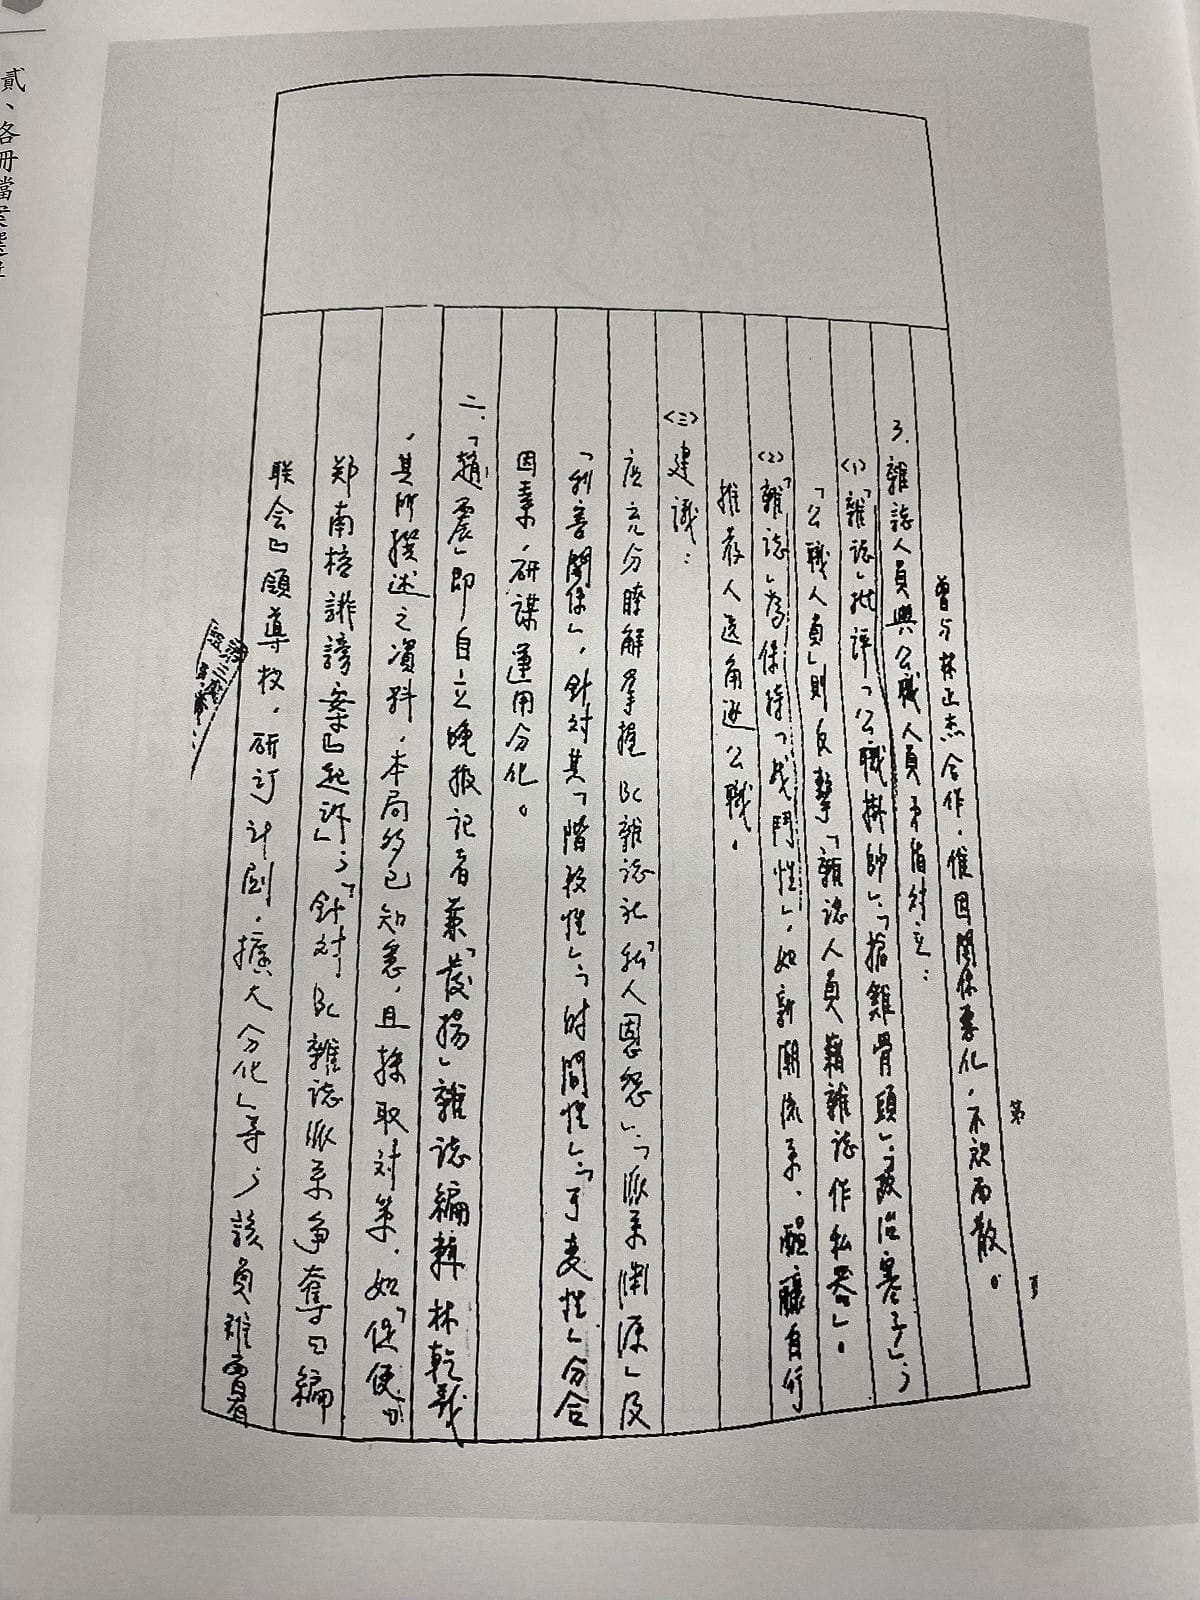 曾与林正杰合作，惟因關係惡化，不歡而散。
3. 雜誌人員與公職人員矛盾対立：
(1)「雜誌」批评「公職掛帥」、「搶雞骨頭」、「政治寡子」；
「公職人員」則反擊「雜誌人員藉雜誌作私器」。
(2)「雜誌」為保持「战鬥性」，如新潮流系，醞釀自行
推荐人选角逐公職。
<三>建議：
应充分瞭解掌握BC雜誌社「私人恩怨」、「派系渊源」及
「利害關係」，針対其「階段性」、「时間性」、「可变性」分合
因素，研謀運用分化。
二、「趙震」即自立晚报记者兼「發揚」雜誌編輯林乾義
，其所撰述之資料，本局多已知悉，且採取対策，如「促使
郑南榕誹謗案」起訴」；「針対BC雜誌派系争奪「編
联会」領導权，研訂計劃，擴大分化」等；該員雖
第
頁
貳、各冊檔案選